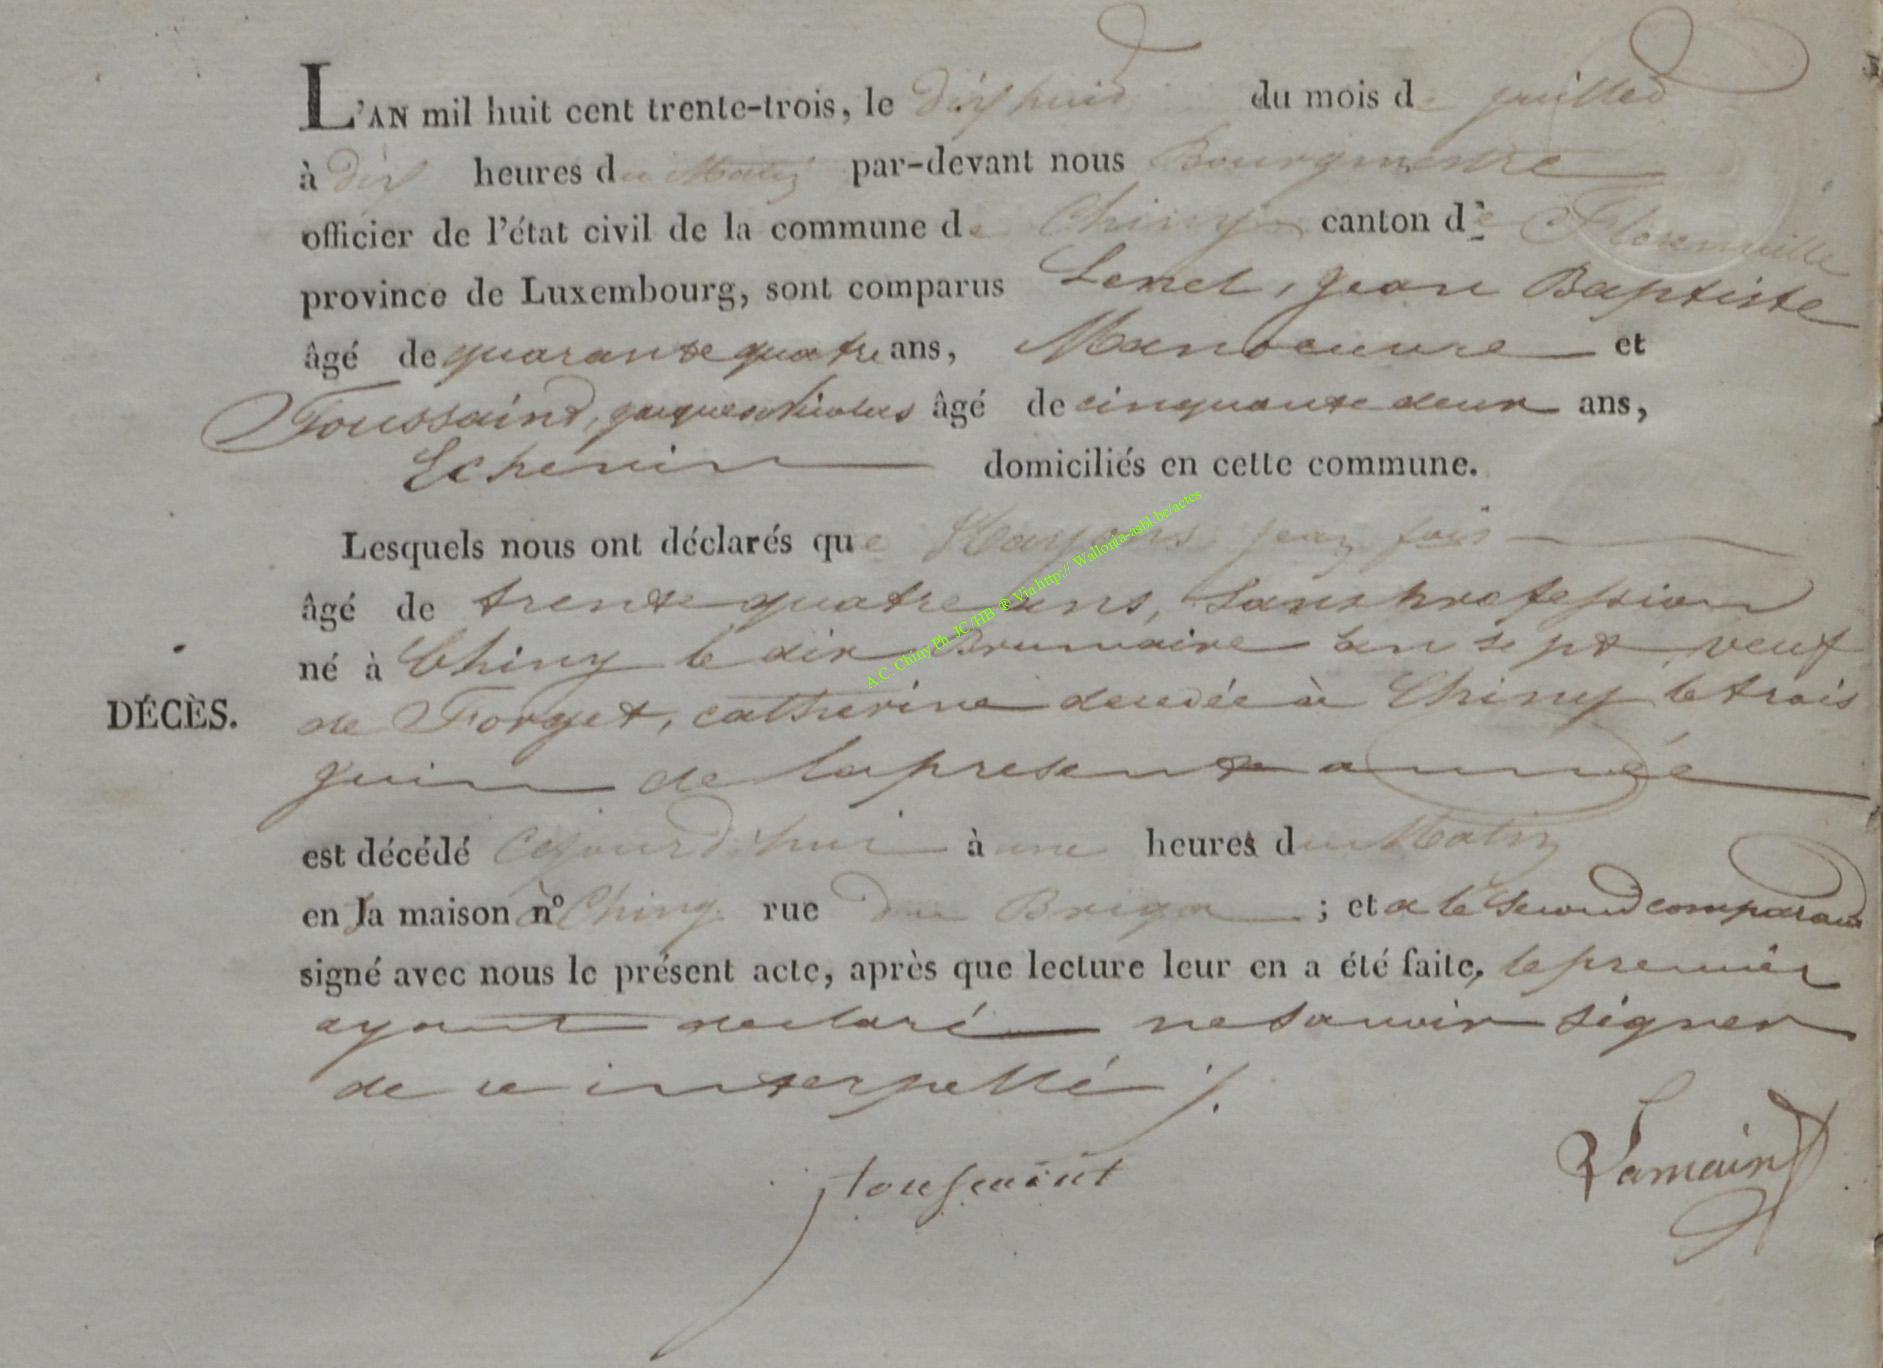 L'AN mil huit cent trente-trois, le dix huit du mois de juillet
à dix heures du Matin par-devant nous Bourgmestre
officier de l'état civil de la commune de Chiny canton de Florenville
province de Luxembourg, sont comparus Jean Baptiste
âgé de quarante quatre ans, Manoeuvre et
Toussaint, jacques Nicolas âgé de cinquante deux ans,
Echevin domiciliés en cette commune.
Lesquels nous ont déclarés que jean
âgé de trente quatre ans, sans profession
né à Chiny le dix Brumaire an sept, veuf
DÉCÈS.
de Forget, catherine decedée à Chiny le trois
juin de la presente année
est décédé cejourd'hui à une heure du Matin
en la maison à Chiny rue du ; et a le second comparant
signé avec nous le présent acte, après que lecture leur en a été faite, le premier
ayant declaré ne savoir signer
de ce interpellé ./.
jtoussaint Lamain
A.C. Chiny Ph. JC/HB ® Via http:// Wallonia-asbl.be/actes